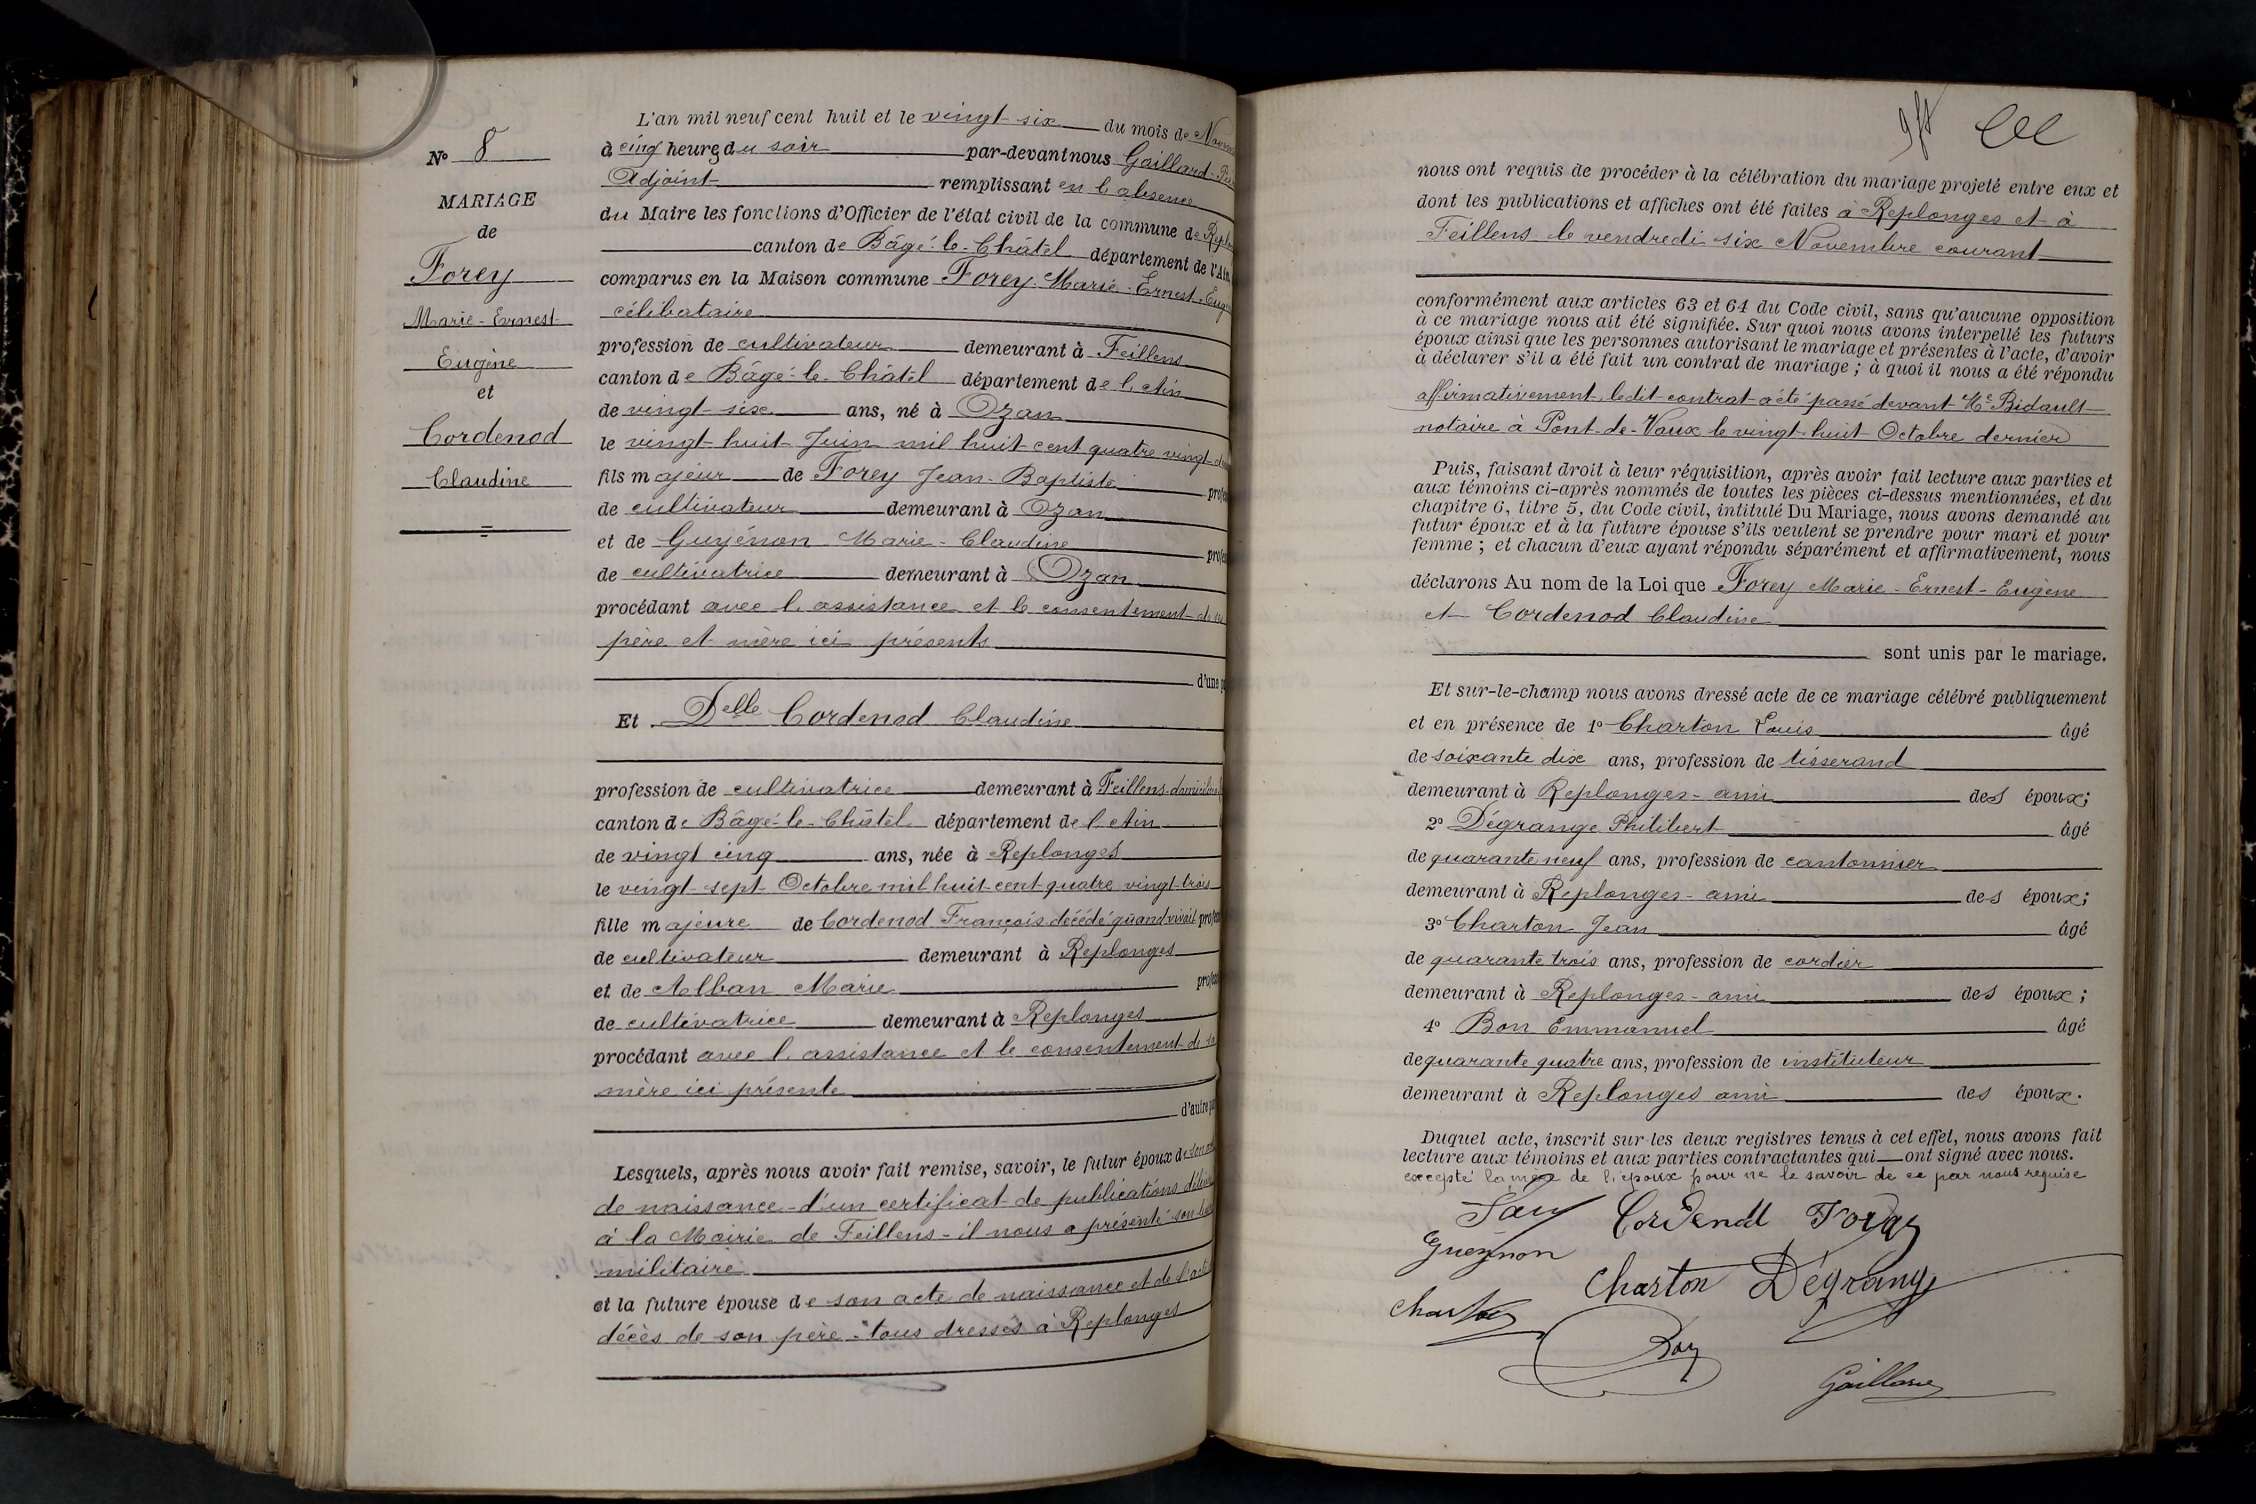 N° 8
MARIAGE
de
Forey
Marie-Ernest-
Eugène
et
Cordenod
Claudine
L'an mil neuf cent huit et le vingt-six du mois de
à cinq heures du soir par-devant nous Gaillard
Adjoint remplissant en l'absence
du Maire les fonctions d'Officier de l'état civil de la commune de
canton de Bâgé-le-Châtel département de l'Ain
comparus en la Maison commune Forey Marie-Ernest-
célibataire
profession de cultivateur demeurant à Feillens
canton de Bâgé-le-Châtel département de l'Ain
de vingt-six ans, né à Ozan
le vingt-huit Juin mil huit cent quatre vingt
fils majeur de Forey Jean-Baptiste
de cultivateur demeurant à Ozan
et de Guyénon Marie-Claudine
de cultivatrice demeurant à Ozan
procédant avec l'assistance et le consentement de
père et mère ici présents
d'une
Et Delle Cordenod Claudine
profession de cultivatrice demeurant à Feillens
canton de Bâgé-le-Châtel département de l'Ain
de vingt cinq ans, née à Replonges
le vingt-sept Octobre mil huit-cent-quatre vingt-trois
fille majeure de Cordenod François décédé quand vivait
de cultivateur demeurant à Replonges
et de Alban Marie
de cultivatrice demeurant à Replonges
procédant avec l'assistance et le consentement de sa
mère ici présente
d'autre
Lesquels, après nous avoir fait remise, savoir, le futur époux de
de naissance d'un certificat de publications
à la Mairie de Feillens - il nous a présenté son
militaire
et la future épouse de son acte de naissance et de
décès de son père - tous dressés à Replonges
nous ont requis de procéder à la célébration du mariage projeté entre eux et
dont les publications et affiches ont été faites à Replonges et à
Feillens le vendredi six Novembre courant
conformément aux articles 63 et 64 du Code civil, sans qu'aucune opposition
à ce mariage nous ait été signifiée. Sur quoi nous avons interpellé les futurs
époux ainsi que les personnes autorisant le mariage et présentes à l'acte, d'avoir
à déclarer s'il a été fait un contrat de mariage ; à quoi il nous a été répondu
affirmativement, ledit contrat a été passé devant Me Bidault
notaire à Pont-de-Vaux le vingt-huit Octobre dernier
Puis, faisant droit à leur réquisition, après avoir fait lecture aux parties et
aux témoins ci-après nommés de toutes les pièces ci-dessus mentionnées, et du
chapitre 6, titre 5, du Code civil, intitulé Du Mariage, nous avons demandé au
futur époux et à la future épouse s'ils veulent se prendre pour mari et pour
femme ; et chacun d'eux ayant répondu séparément et affirmativement, nous
déclarons Au nom de la Loi que Forey Marie-Ernest-Eugène
et Cordenod Claudine
sont unis par le mariage.
Et sur-le-champ nous avons dressé acte de ce mariage célébré publiquement
et en présence de 1° Charton Louis âgé
de soixante dix ans, profession de tisserand
demeurant à Replonges - ami des époux;
2° Dégrange Philibert âgé
de quarante neuf ans, profession de cantonnier
demeurant à Replonges - ami des époux;
3° Charton Jean âgé
de quarante trois ans, profession de cordier
demeurant à Replonges - ami des époux;
4° Bon Emmanuel âgé
de quarante quatre ans, profession de instituteur
demeurant à Replonges ami des époux.
Duquel acte, inscrit sur les deux registres tenus à cet effet, nous avons fait
lecture aux témoins et aux parties contractantes qui ont signé avec nous.
excepté la mère de l'époux pour ne le savoir de ce par nous requise
Cordenod Forey
Guyénon
Charton Dégrange
Charton
Bon
Gaillard